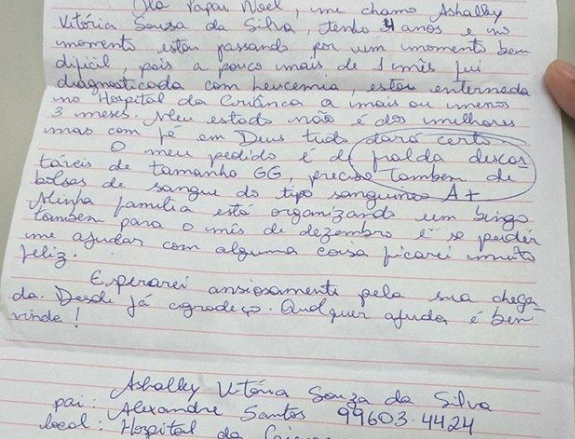 Ola Papai Noel, me chamo Ashalley
Vitória Sousa da Silva, tenho 4 anos e no
momento estou passando por um momento bem
dificil pois a pouco mais de 1 mês fui
diagnosticada com leucemia, estou enternada
no Hospital da Criança a mais ou menos
3 meses. Meu estado não é dos melhores
mas com fé em Deus tudo dará certo.
O meu pedido é de fralda descar
táveis de tamanho GG, preciso tambem de
bolsas de sangue do tipo sanguineo A+
Minha família está organizando um bingo
tambem para o mês de dezembro e se puder
me ajudar com alguma coisa ficarei muito
feliz.
Esperarei ansiosamente pela sua chega-
da. Desde já agradeço. Qualquer ajuda é bem
vinda!
Ashalley Vitória Souza da Silva
pai: Alexandre Santos 99603-4424
local: Hospital da